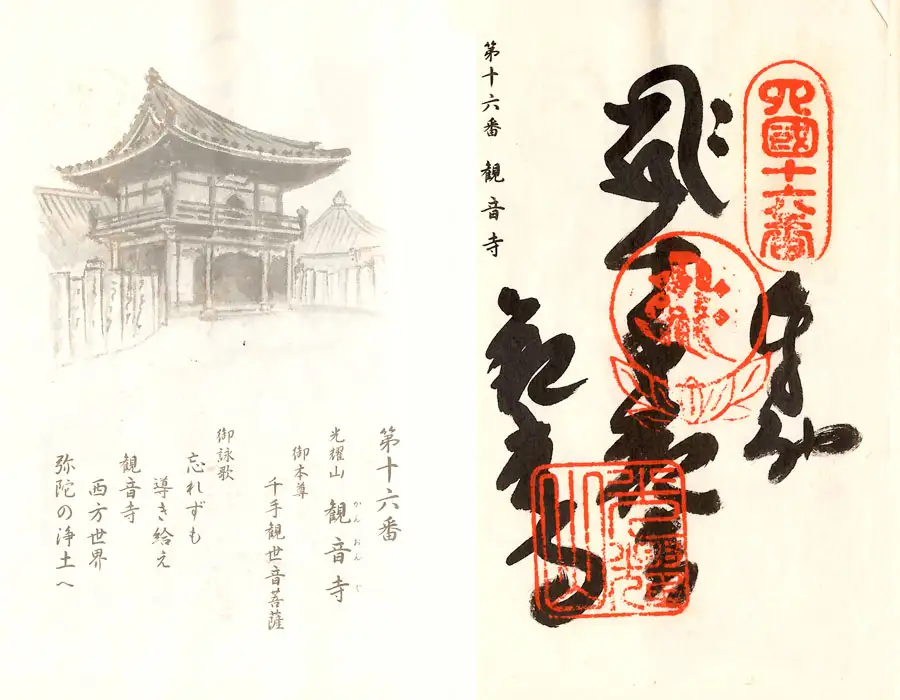 四國十六番
奉納
観音寺
光耀山
第十六番 観音寺
第十六番
光耀山 観音寺
かんおんじ
御本尊
千手観世音菩薩
御詠歌
忘れずも
導き給え
観音寺
西方世界
弥陀の浄土へ